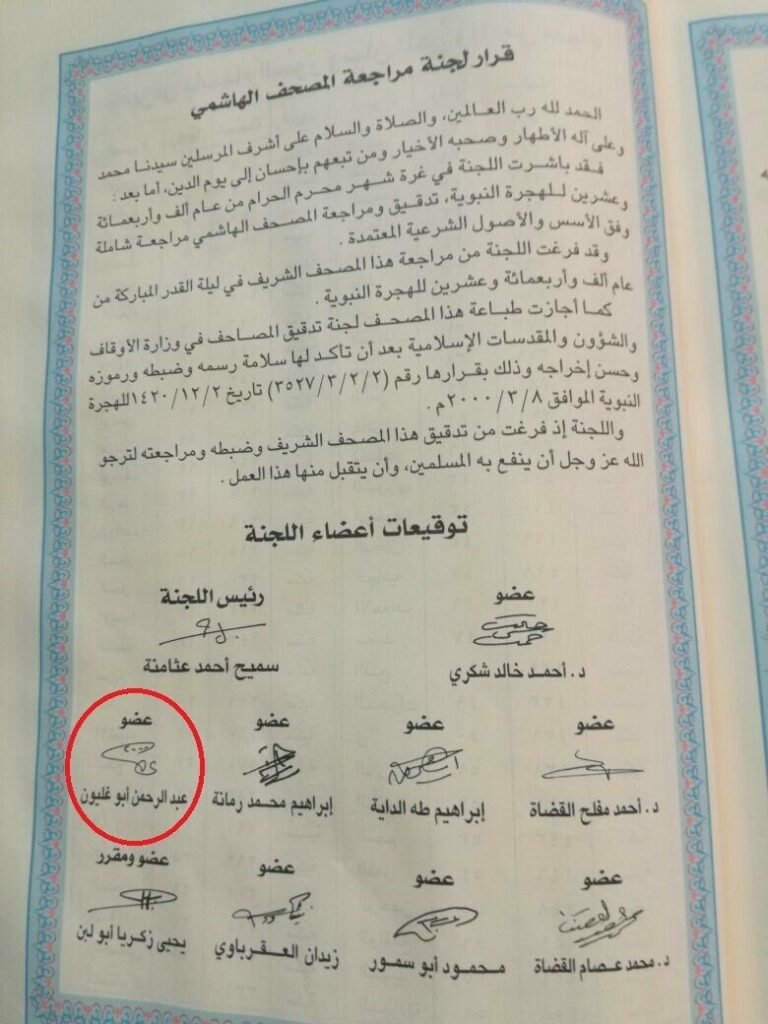 قرار لجنة مراجعة المصحف الهاشمي
الحمد لله رب العالمين، والصلاة والسلام على أشرف المرسلين سيدنا محمد
وعلى آله الأطهار وصحبه الأخيار ومن تبعهم بإحسان إلى يوم الدين، أما بعد :
فقد باشرت اللجنة في غرة شهر محرم الحرام من عام ألف وأربعمائة
وعشرين للهجرة النبوية، تدقيق ومراجعة المصحف الهاشمي مراجعة شاملة
وفق الأسس والأصول الشرعية المعتمدة .
وقد فرغت اللجنة من مراجعة هذا المصحف الشريف في ليلة القدر المباركة من
عام ألف وأربعمائة وعشرين للهجرة النبوية .
كما أجازت طباعة هذا المصحف لجنة تدقيق المصاحف في وزارة الأوقاف
والشؤون والمقدسات الإسلامية بعد أن تأكد لها سلامة رسمه وضبطه ورموزه
وحسن إخراجه وذلك بقرارها رقم (٣٥٢٧/٣/٢/٢) تاريخ ١٤٢٠/١٢/٢للهجرة
النبوية الموافق ٢٠٠٠/٣/٨م .
واللجنة إذ فرغت من تدقيق هذا المصحف الشريف وضبطه ومراجعته لترجو
الله عز وجل أن ينفع به المسلمين، وأن يتقبل منها هذا العمل .
توقيعات أعضاء اللجنة
عضو
د. أحمد خالد شكري
رئيس اللجنة
سميح أحمد عثامنة
عضو
د. أحمد مفلح القضاة
عضو
إبراهيم طه الداية
عضو
إبراهيم محمد رمانة
عضو
عبد الرحمن أبو غليون
عضو
د. محمد عصام القضاة
عضو
محمود أبو سمور
عضو
زيدان العقرباوي
عضو ومقرر
يحيى زكريا أبو لبن